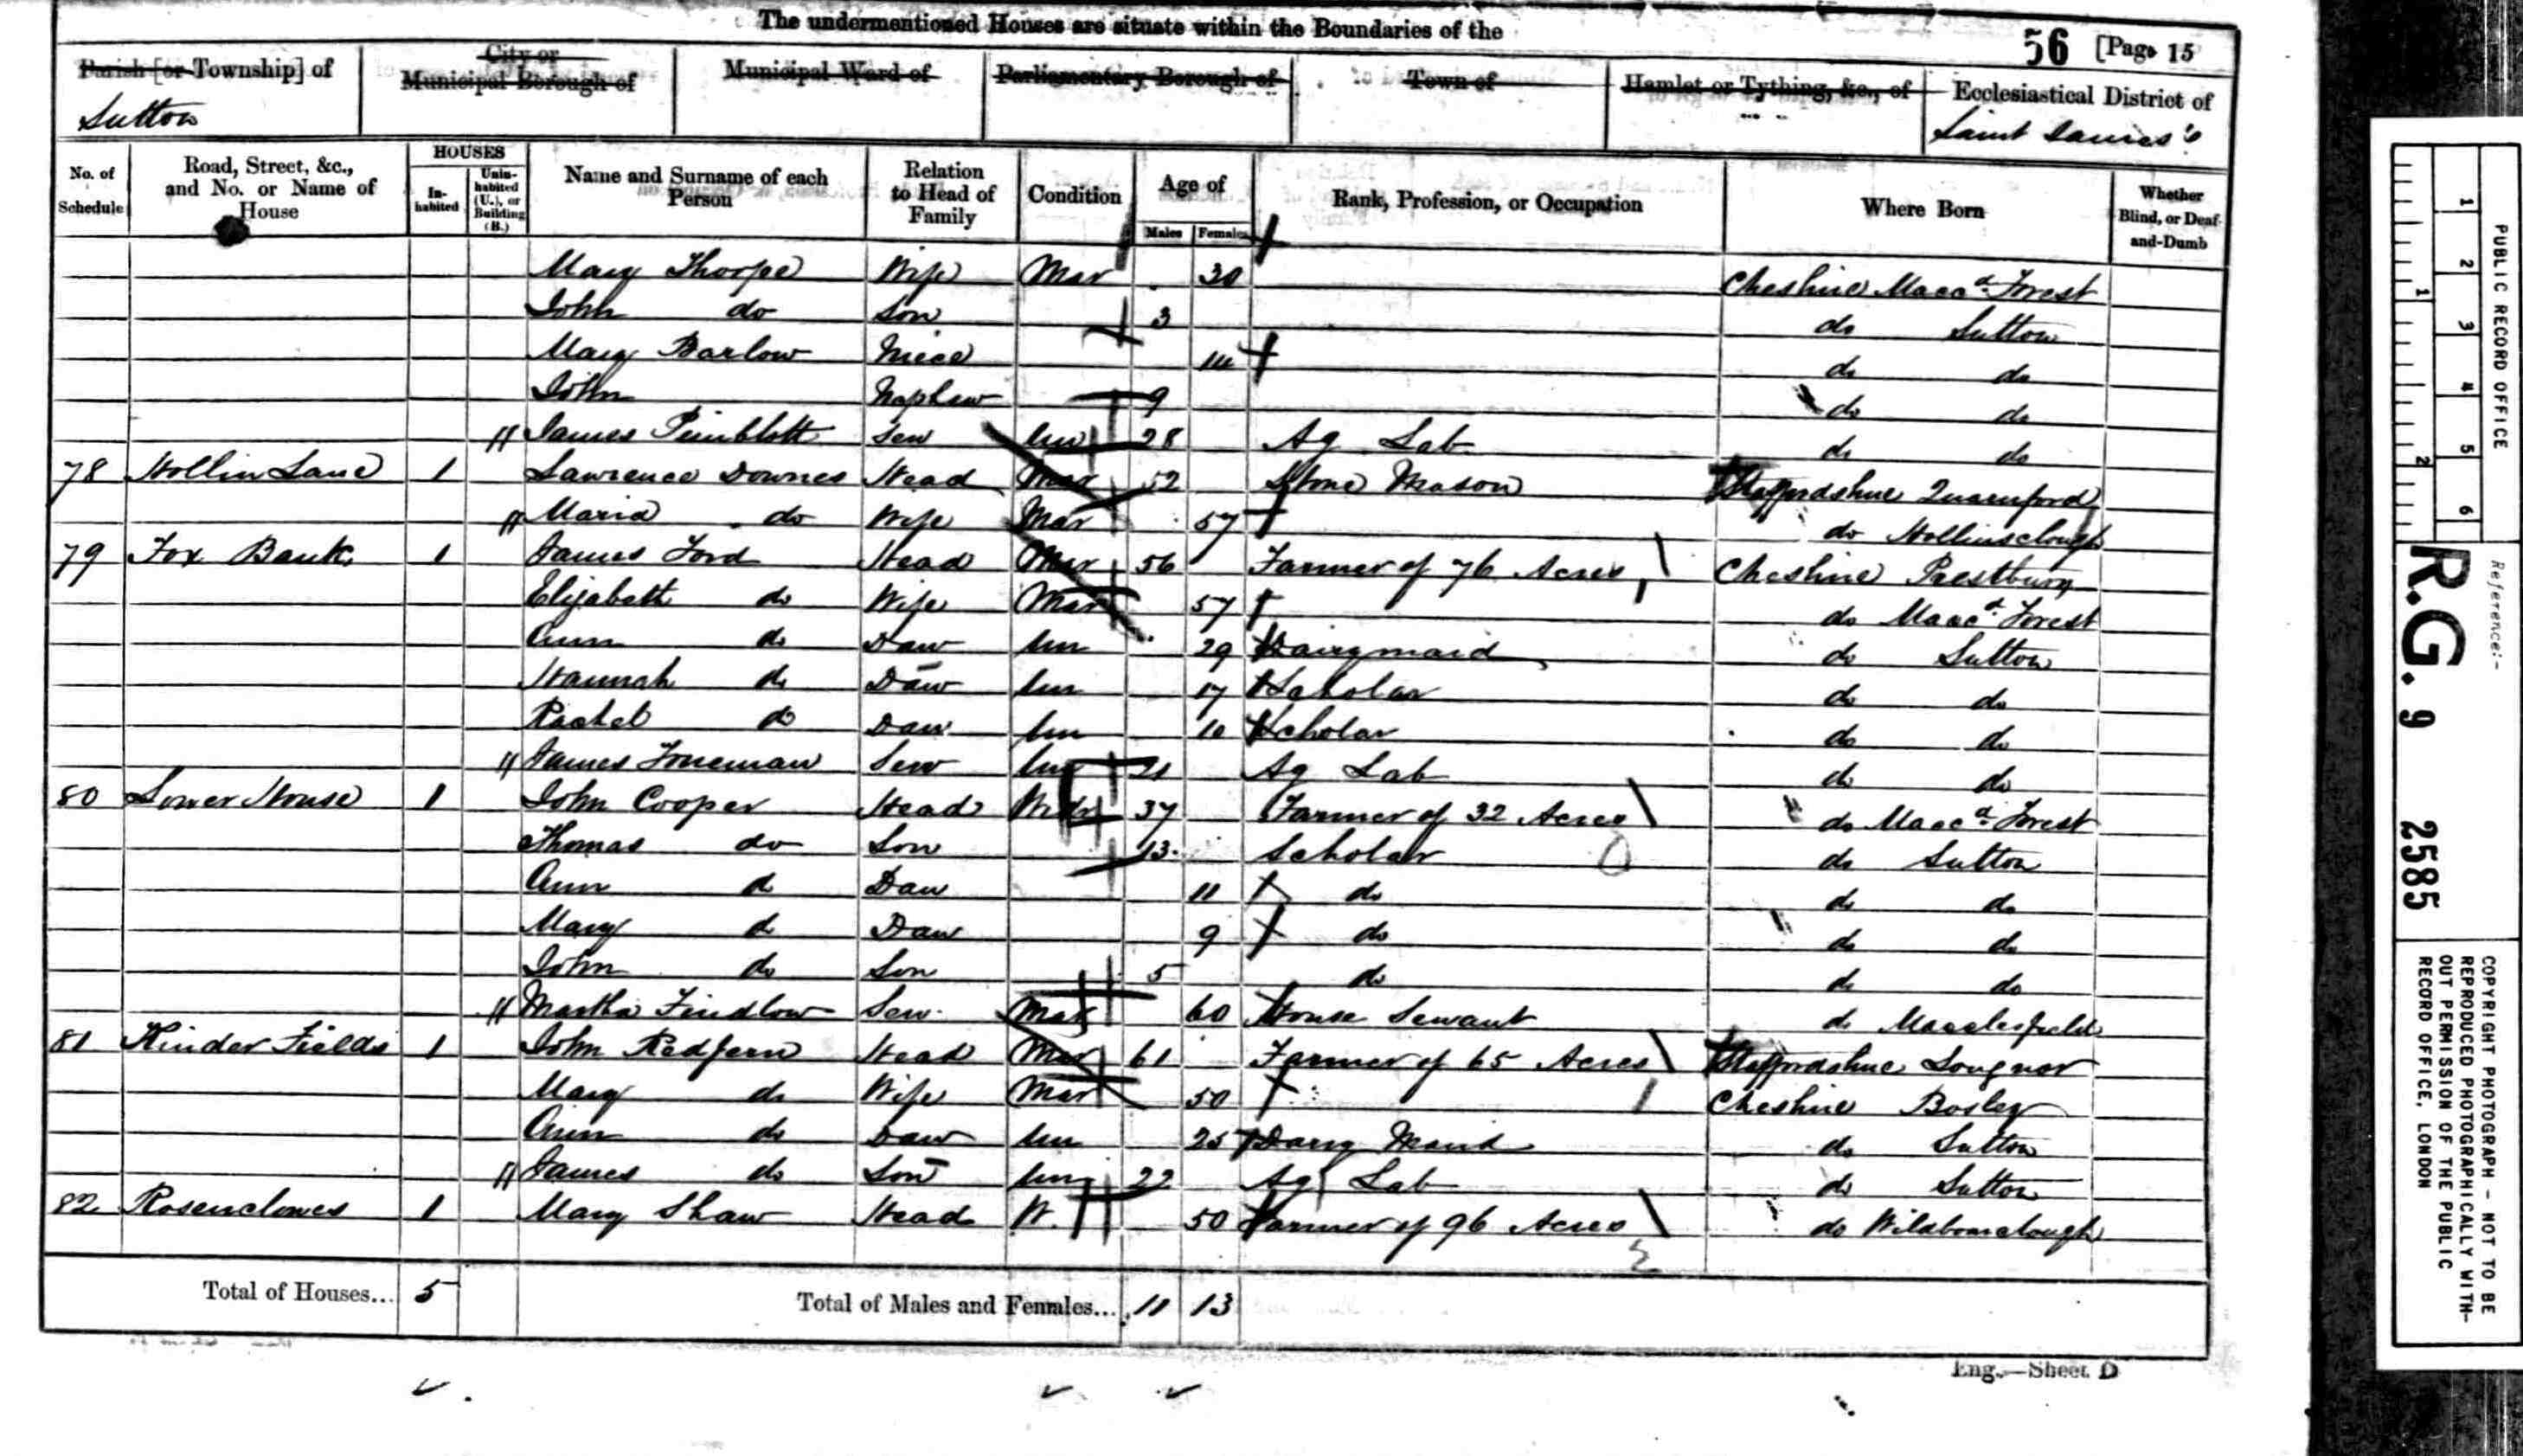 The undermentioned Houses are situate within the Boundaries of the
56 [Page 15
Parish [or Township] of
City or Municipal Borough of
Municipal Ward of
Parliamentary Borough of
Town of
Hamlet or Tything, &c., of
Ecclesiastical District of
Sutton
Saint James's
No. of Schedule
Road, Street, &c., and No. or Name of House
HOUSES
In-habited
Unin-habited (U.), or Building (B.)
Name and Surname of each Person
Relation to Head of Family
Condition
Age of
Males
Females
Rank, Profession, or Occupation
Where Born
Whether Blind, or Deaf-and-Dumb
Mary Thorpe Wife Mar 30 Cheshire Maccd. Forest
John do Son 3 do Sutton
Mary Barlow Niece 14 do do
John Nephew 9 do do
// James Pimblott Serv Un 28 Ag Lab do do
78 Hollin Lane 1 Lawrence Downes Head Mar 52 Stone Mason Staffordshire Quarnford
// Maria do Wife Mar 57 do Hollinsclough
79 Fox Bank 1 James Ford Head Mar 56 Farmer of 76 Acres Cheshire Prestbury
Elizabeth do Wife Mar 57 do Maccd. Forest
Ann do Daur Un 29 Dairymaid do Sutton
Hannah do Daur Un 17 Scholar do do
Rachel do Daur Un 10 Scholar do do
// James Serv Un 21 Ag Lab do do
80 Lower House 1 John Cooper Head Widr 37 Farmer of 32 Acres do Maccd. Forest
Thomas do Son 13 Scholar do Sutton
Ann do Daur 11 do do do
Mary do Daur 9 do do do
John do Son 5 do do do
// Martha Findlow Serv Mar 60 House Servant do Macclesfield
81 Kinder Fields 1 John Redfern Head Mar 61 Farmer of 65 Acres Staffordshire Longnor
Mary do Wife Mar 50 Cheshire Bosley
Ann do Daur Un 25 Dairy Maid do Sutton
// James do Son Un 22 Ag Lab do Sutton
82 Rosenclowes 1 Mary Shaw Head W. 50 Farmer of 96 Acres do Wildboarclough
Total of Houses... 5
Total of Males and Females... 11 13
Eng.—Sheet D
PUBLIC RECORD OFFICE
1 2 3 4 5 6
1 2
Reference:-
R.G. 9 2585
COPYRIGHT PHOTOGRAPH - NOT TO BE
REPRODUCED PHOTOGRAPHICALLY WITH-
OUT PERMISSION OF THE PUBLIC
RECORD OFFICE, LONDON